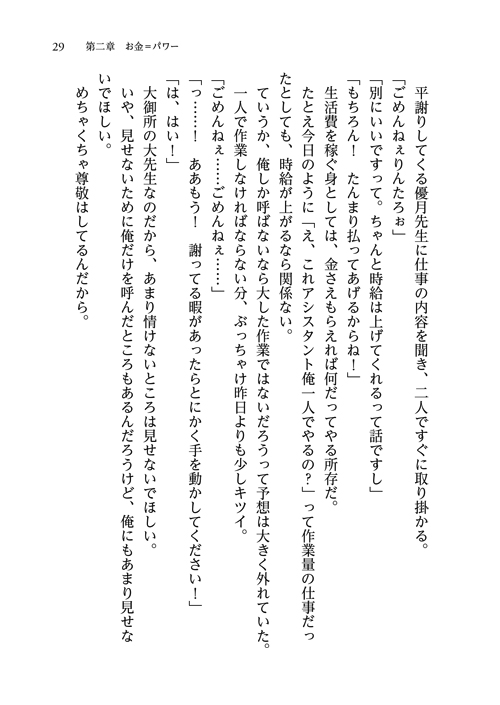 29　第二章　お金＝パワー
　平謝りしてくる優月先生に仕事の内容を聞き、二人ですぐに取り掛かる。
「ごめんねぇりんたろぉ」
「別にいいですって。ちゃんと時給は上げてくれるって話ですし」
「もちろん！　たんまり払ってあげるからね！」
　生活費を稼ぐ身としては、金さえもらえれば何だってやる所存だ。
　たとえ今日のように「え、これアシスタント俺一人でやるの？」って作業量の仕事だっ
たとしても、時給が上がるなら関係ない。
　ていうか、俺しか呼ばないなら大した作業ではないだろうって予想は大きく外れていた。
　一人で作業しなければならない分、ぶっちゃけ昨日よりも少しキツイ。
「ごめんねぇ……ごめんねぇ……」
「っ……！　ああもう！　謝ってる暇があったらとにかく手を動かしてください！」
「は、はい！」
　大御所の大先生なのだから、あまり情けないところは見せないでほしい。
　いや、見せないために俺だけを呼んだところもあるんだろうけど、俺にもあまり見せな
いでほしい。
　めちゃくちゃ尊敬はしてるんだから。